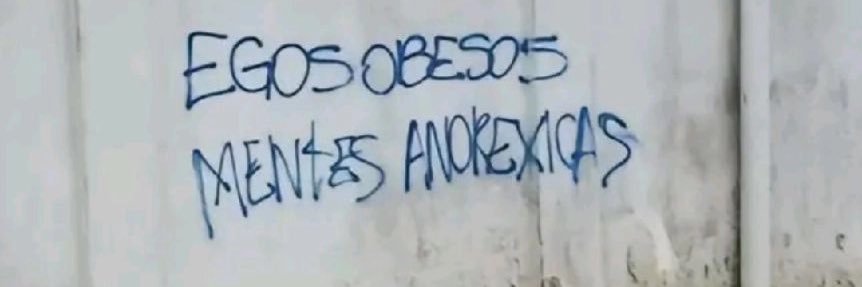 EGOS OBESOS
MENTES ANOREXICAS